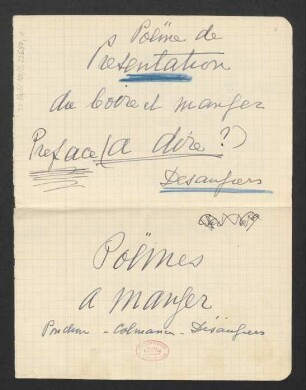 Poëme de
Presentation
du boire et manger
Preface (a dire ?)
Desaugiers
Poëmes
a manger
Ponchon - Colmance - Désaugiers